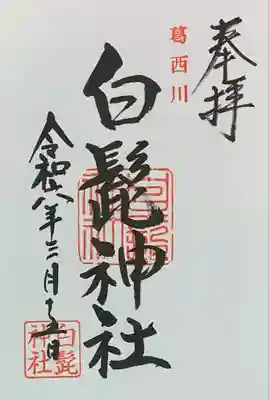 奉拝
葛西川
白髭神社
令和八年三月十五日
白髭
神社